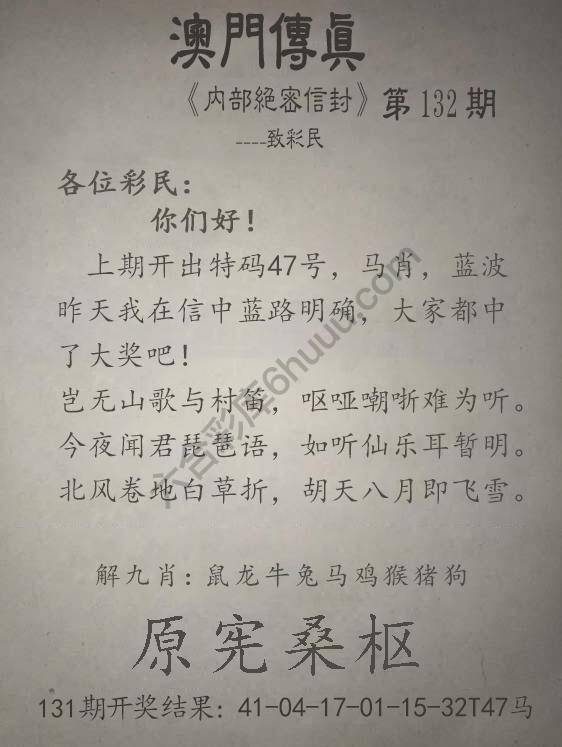 澳門傳眞
《内部絕密信封》第132期
----致彩民
各位彩民：
你们好！
上期开出特码47号，马肖，蓝波
昨天我在信中蓝路明确，大家都中
了大奖吧！
岂无山歌与村笛，呕哑嘲哳难为听。
今夜闻君琵琶语，如听仙乐耳暂明。
北风卷地白草折，胡天八月即飞雪。
六合彩库6huuu.com
解九肖：鼠龙牛兔马鸡猴猪狗
原宪桑枢
131期开奖结果：41-04-17-01-15-32T47马